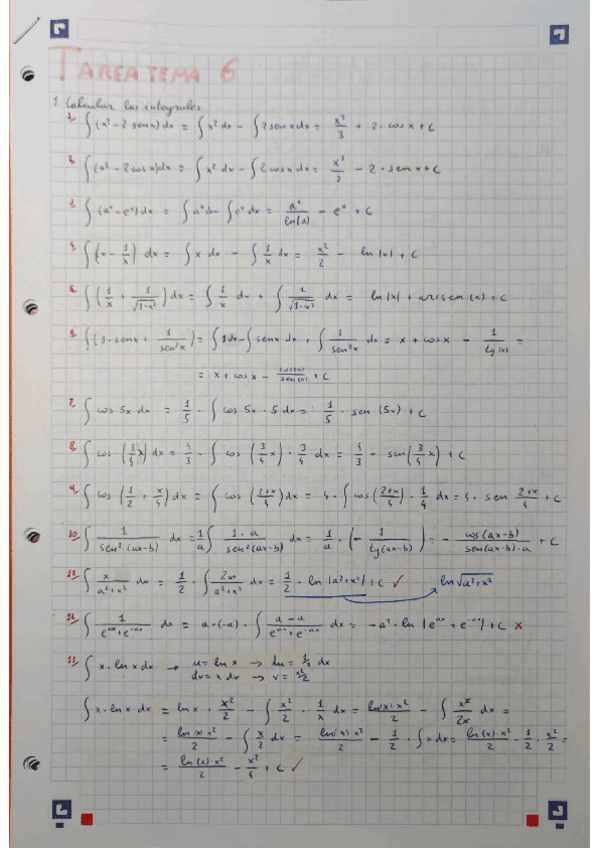 TAREA TEMA 6
1 Calcular las integrales
1. ∫(x² - 2 sen x) dx = ∫x² dx - ∫2 sen x dx = x³/3 + 2 · cos x + C
2. ∫(x² - 2 cos x) dx = ∫x² dx - ∫2 cos x dx = x³/3 - 2 · sen x + C
3. ∫(aˣ - eˣ) dx = ∫aˣ dx - ∫eˣ dx = aˣ/ln(a) - eˣ + C
4. ∫(x - 1/x) dx = ∫x dx - ∫1/x dx = x²/2 - ln|x| + C
5. ∫(1/x + 1/√(1-x²)) dx = ∫1/x dx + ∫1/√(1-x²) dx = ln|x| + arcsen(x) + C
6. ∫(1 - sen x + 1/sen²x) = ∫1 dx - ∫sen x dx + ∫1/sen²x dx = x + cos x - 1/tg(x) =
= x + cos x - cos(x)/sen(x) + C
7. ∫cos 5x dx = 1/5 - ∫cos 5x · 5 dx = 1/5 · sen (5x) + C
8. ∫cos (3/4 x) dx = 4/3 - ∫cos (3/4 x) · 3/4 dx = 4/3 - sen(3/4 x) + C
9. ∫cos (1/2 + x/4) dx = ∫cos (2+x/4) dx = 4 · ∫cos (2+x/4) · 1/4 dx = 4 · sen 2+x/4 + C
10. ∫1/sen²(ax-b) dx = 1/a ∫1·a/sen²(ax-b) dx = 1/a · (- 1/tg(ax-b)) = - cos(ax-b)/sen(ax-b)·a + C
11. ∫x/a²+x² dx = 1/2 · ∫2x/a²+x² dx = 1/2 · ln |a²+x²| + C ✓ ln√(a²+x²)
12. ∫1/eᵃˣ+e⁻ᵃˣ dx = a·(-a) · ∫a-a/eᵃˣ+e⁻ᵃˣ dx = -a² · ln |eᵃˣ + e⁻ᵃˣ| + C ×
13. ∫x · ln x dx → u = ln x → du = 1/x dx
dv = x dx → v = x²/2
∫x · ln x dx = ln x · x²/2 - ∫x²/2 · 1/x dx = ln(x)·x²/2 - ∫x²/2x dx =
= ln(x)·x²/2 - ∫x/2 dx = ln(x)·x²/2 - 1/2 · ∫x dx = ln(x)·x²/2 - 1/2 · x²/2 =
= ln(x)·x²/2 - x²/4 + C ✓